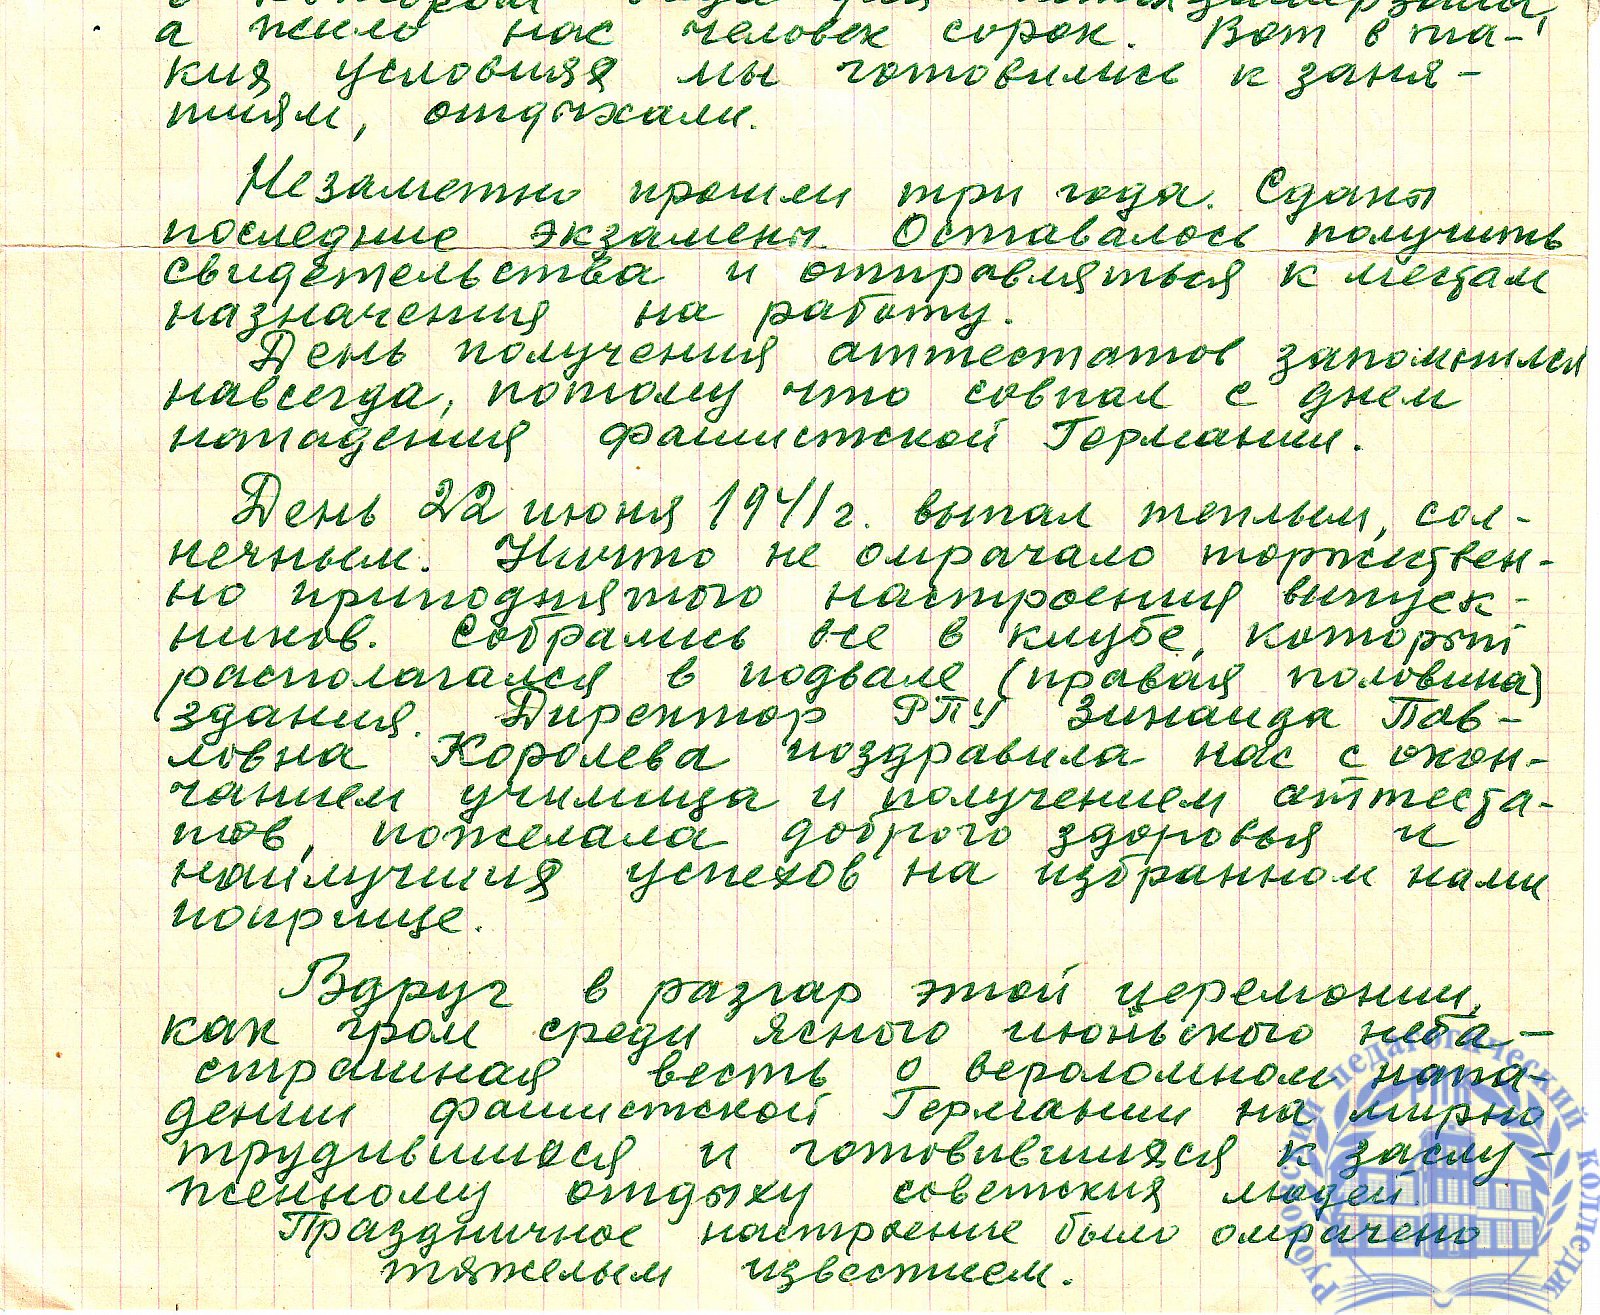 а жило нас человек сорок. Вот в та-
ких условиях мы готовились к заня-
тиям, отдыхали.
Незаметно прошли три года. Сданы
последние экзамены. Оставалось получить
свидетельства и отправляться к местам
назначения на работу.
День получения аттестатов запомнился
навсегда, потому что совпал с днем
нападения фашистской Германии.
День 22 июня 1941 г. выпал теплым, сол-
нечным. Ничто не омрачало торжествен-
но приподнятого настроения выпуск-
ников. Собрались все в клубе, который
располагался в подвале (правая половина)
здания. Директор РПУ Зинаида Пав-
ловна Королева поздравила нас с окон-
чанием училища и получением аттеста-
тов, пожелала доброго здоровья и
наилучших успехов на избранном нами
поприще.
Вдруг в разгар этой церемонии,
как гром среди ясного июньского неба -
страшная весть о вероломном напа-
дении фашистской Германии на мирно
трудившихся и готовившихся к заслу-
женному отдыху советских людей.
Праздничное настроение было омрачено
тяжелым известием.
Рубцовский педагогический колледж